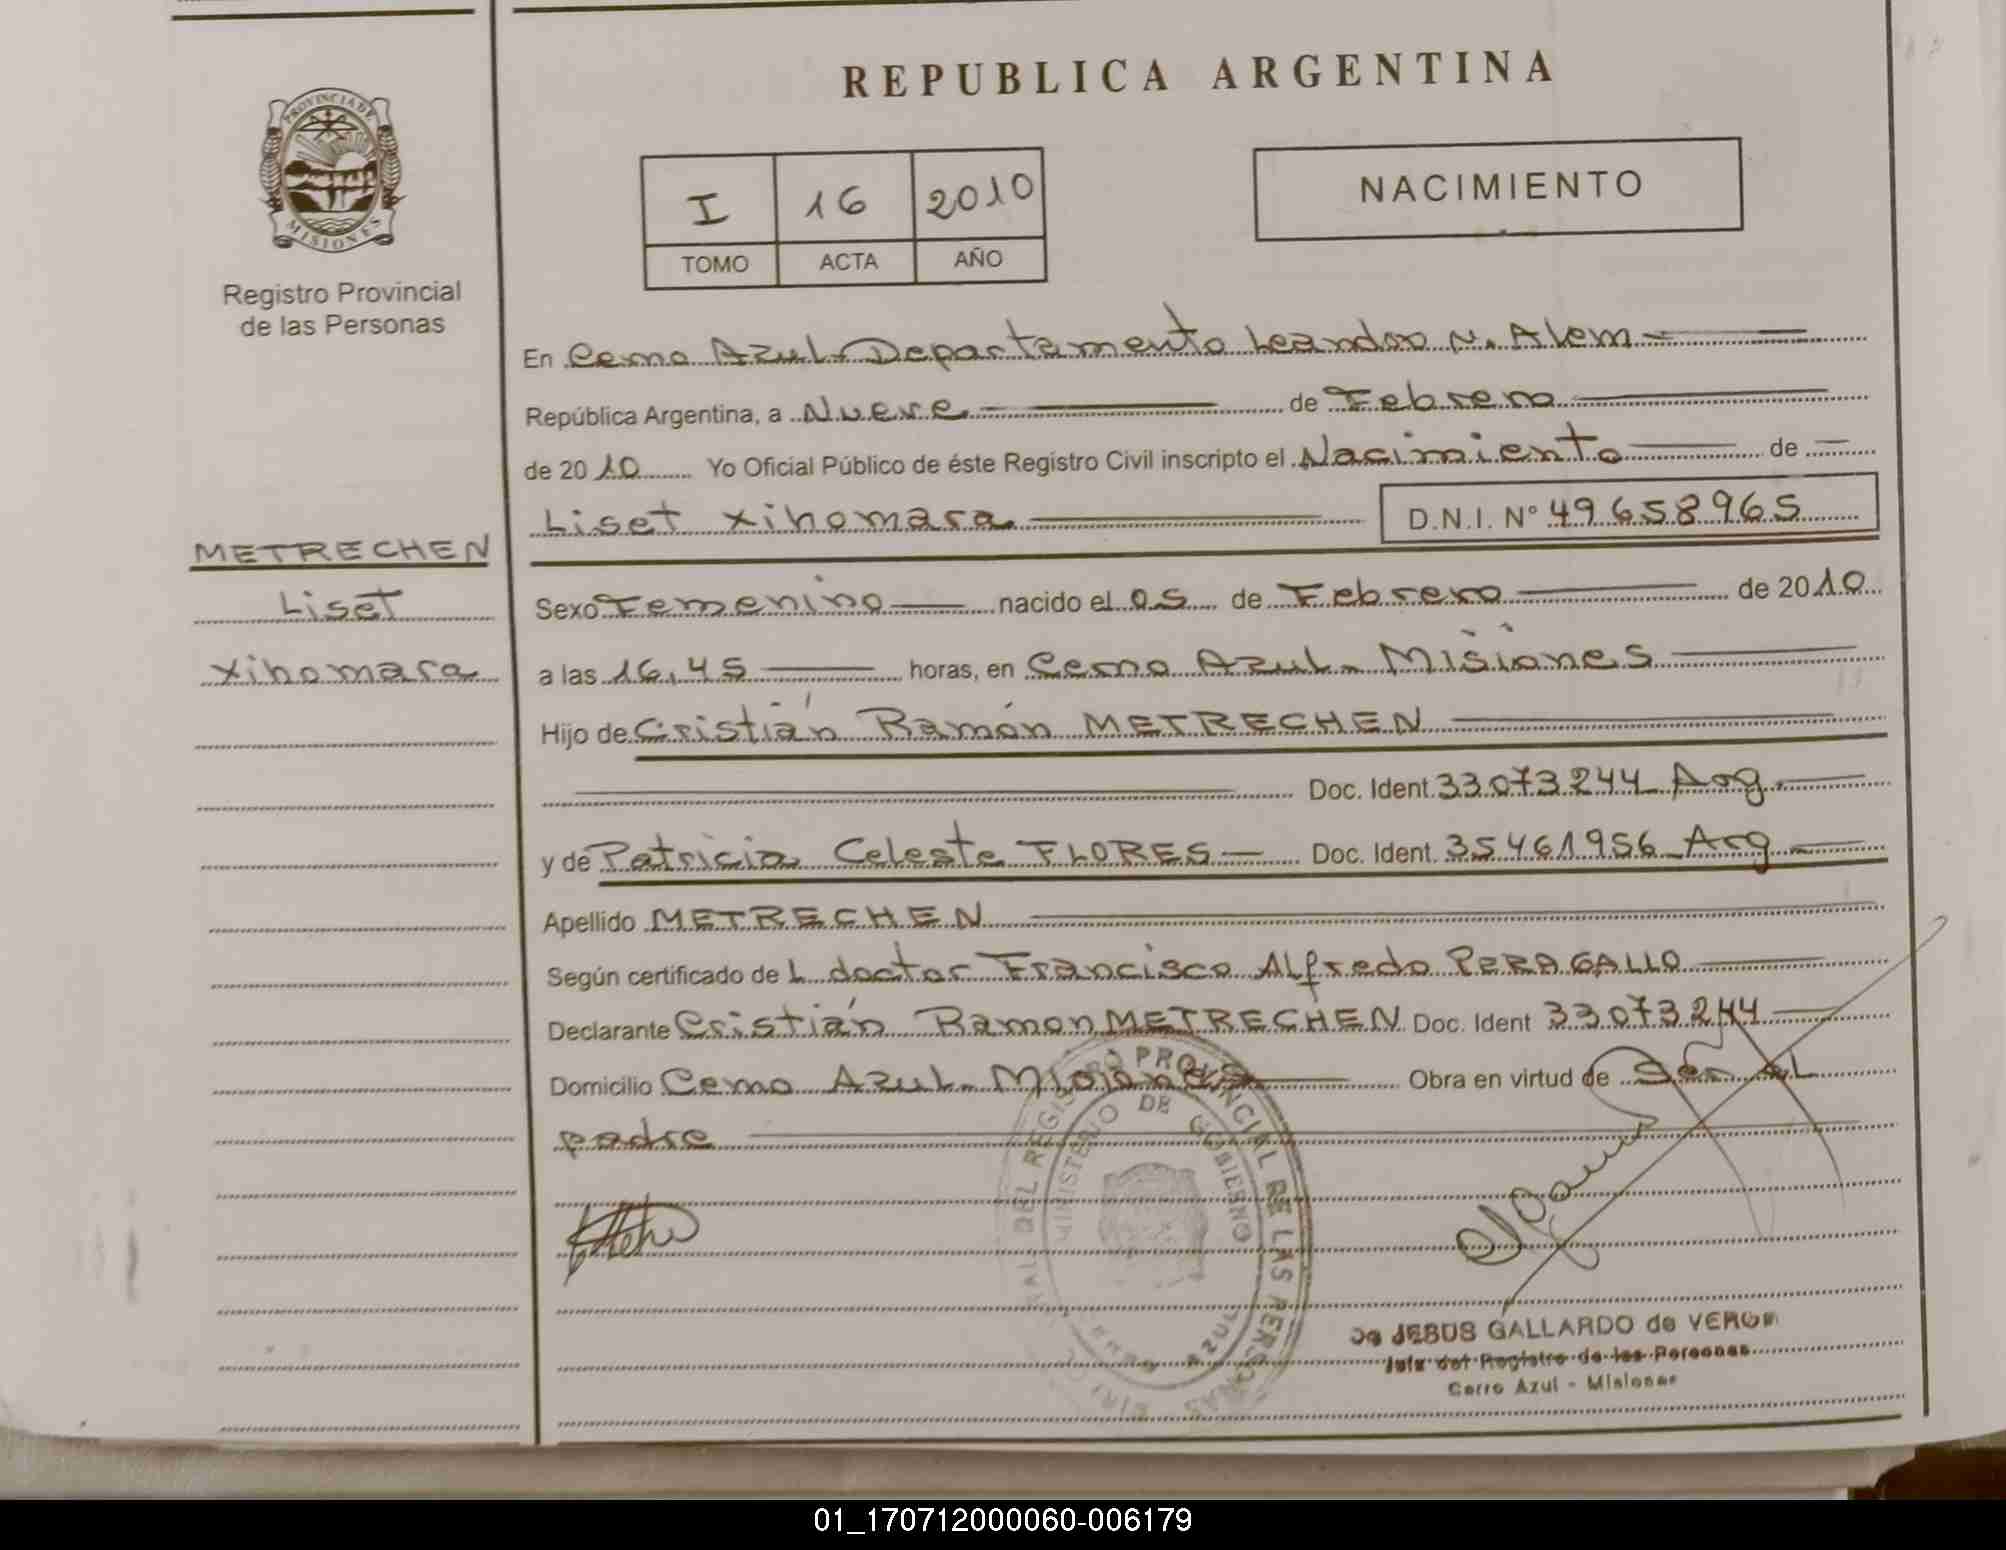 REPUBLICA ARGENTINA
PROVINCIA DE MISIONES
Registro Provincial
de las Personas
I 16 2010
TOMO ACTA AÑO
NACIMIENTO
En Cerro Azul - Departamento Leandro N. Alem
República Argentina, a Nueve de Febrero
de 2010 Yo Oficial Público de éste Registro Civil inscripto el Nacimiento de
Liset Xihomara D.N.I. N° 49658965
METRECHEN
Liset
Xihomara
Sexo Femenino nacido el 05 de Febrero de 2010
a las 16,45 horas, en Cerro Azul - Misiones
Hijo de Cristián Ramón METRECHEN
Doc. Ident. 33073244 Arg.
y de Patricia Celeste FLORES Doc. Ident. 35461956 Arg
Apellido METRECHEN
Según certificado de L doctor Francisco Alfredo PERAGALLO
Declarante Cristián Ramon METRECHEN Doc. Ident 33073244
Domicilio Cerro Azul - Misiones Obra en virtud de Ser el
padre
REGISTRO PROVINCIAL DE LAS PERSONAS
MINISTERIO DE GOBIERNO
JESUS GALLARDO de
Jefe del Registro de las Personas
Cerro Azul - Misiones
01_170712000060-006179